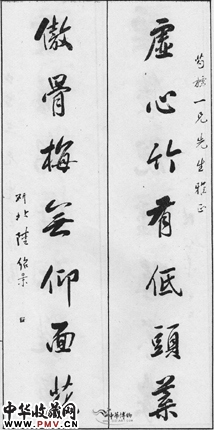 一兄先生雅正
虛心竹有低頭葉
傲骨梅無仰面花
北陸
中华博物
中华收藏网
WWW.PMV.CN